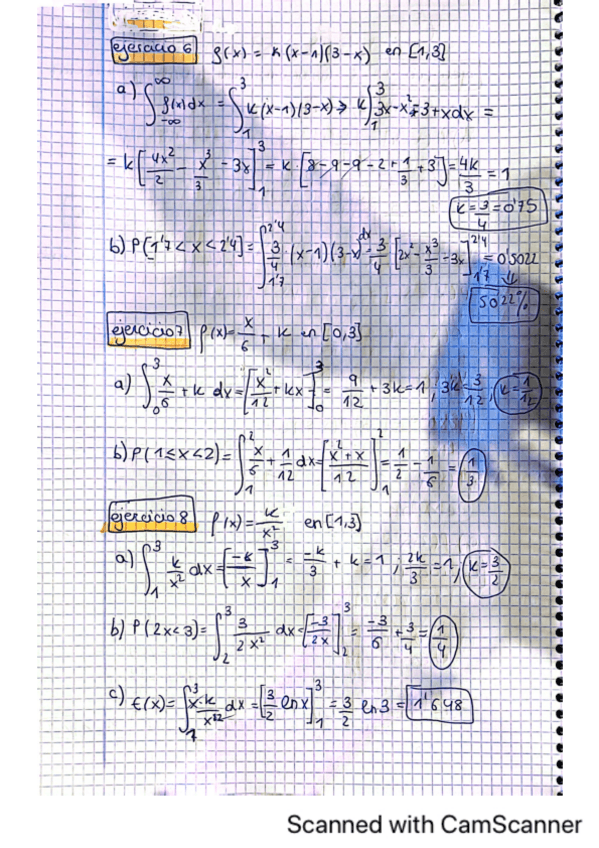 ejercicio 6 f(x) = k(x-1)(3-x) en [1,3]
a) ∫_{-∞}^{∞} f(x)dx = ∫_1^3 k(x-1)(3-x) → k∫_1^3 3x-x²-3+xdx =
= k[4x²/2 - x³/3 - 3x]_1^3 = k[8-9-9-2+1/3+3] = 4k/3 = 1
k=3/4=0'75
b) P[1'7<x<2'4] = ∫_{1'7}^{2'4} 3/4 (x-1)(3-x)dx = 3/4 [2x² - x³/3 - 3x]_{1'7}^{2'4} = 0'5022
↓
50'22%
ejercicio 7 f(x)= x/6 + k en [0,3]
a) ∫_0^3 x/6 + k dx = [x²/12 + kx]_0^3 = 9/12 + 3k = 1, 3k = 3/12, k=1/12
b) P(1≤x<2) = ∫_1^2 x/6 + 1/12 dx = [x²+x/12]_1^2 = 1/2 - 1/6 = 1/3
ejercicio 8 f(x)= k/x² en [1,3]
a) ∫_1^3 k/x² dx = [-k/x]_1^3 = -k/3 + k = 1; 2k/3 = 1, k=3/2
b) P(2x<3) = ∫_2^3 3/2x² dx = [-3/2x]_2^3 = -3/6 + 3/4 = 1/4
c) E(x) = ∫_1^3 x·k/x² dx = [3/2 ln x]_1^3 = 3/2 ln3 = 1'648
Scanned with CamScanner